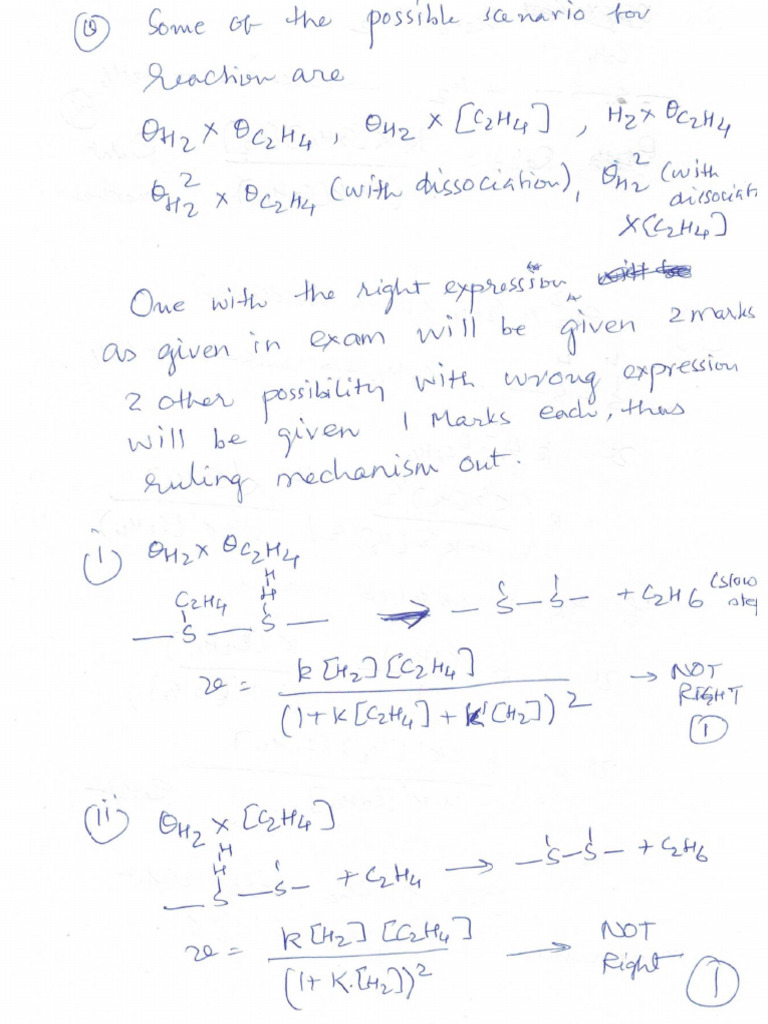 Some of the possible scenario for
reaction are
θH2 x θC2H4, θH2 x [C2H4], H2 x θC2H4
θH2² x θC2H4 (with dissociation), θH2² (with
dissociat
x [C2H4]
One with the right expression
as given in exam will be given 2 marks
2 other possibility with wrong expression
will be given 1 Marks each, thus
ruling mechanism out.
(i) θH2 x θC2H4
H
C2H4 H
— S — S — → — S — S — + C2H6 (slow
step
v = k[H2][C2H4] / (1+K[C2H4]+K'[H2])² → NOT
RIGHT
(1)
(ii) θH2 x [C2H4]
H
H
— S — S — + C2H4 → — S — S — + C2H6
v = k[H2][C2H4] / (1+K.[H2])² → NOT
Right (1)